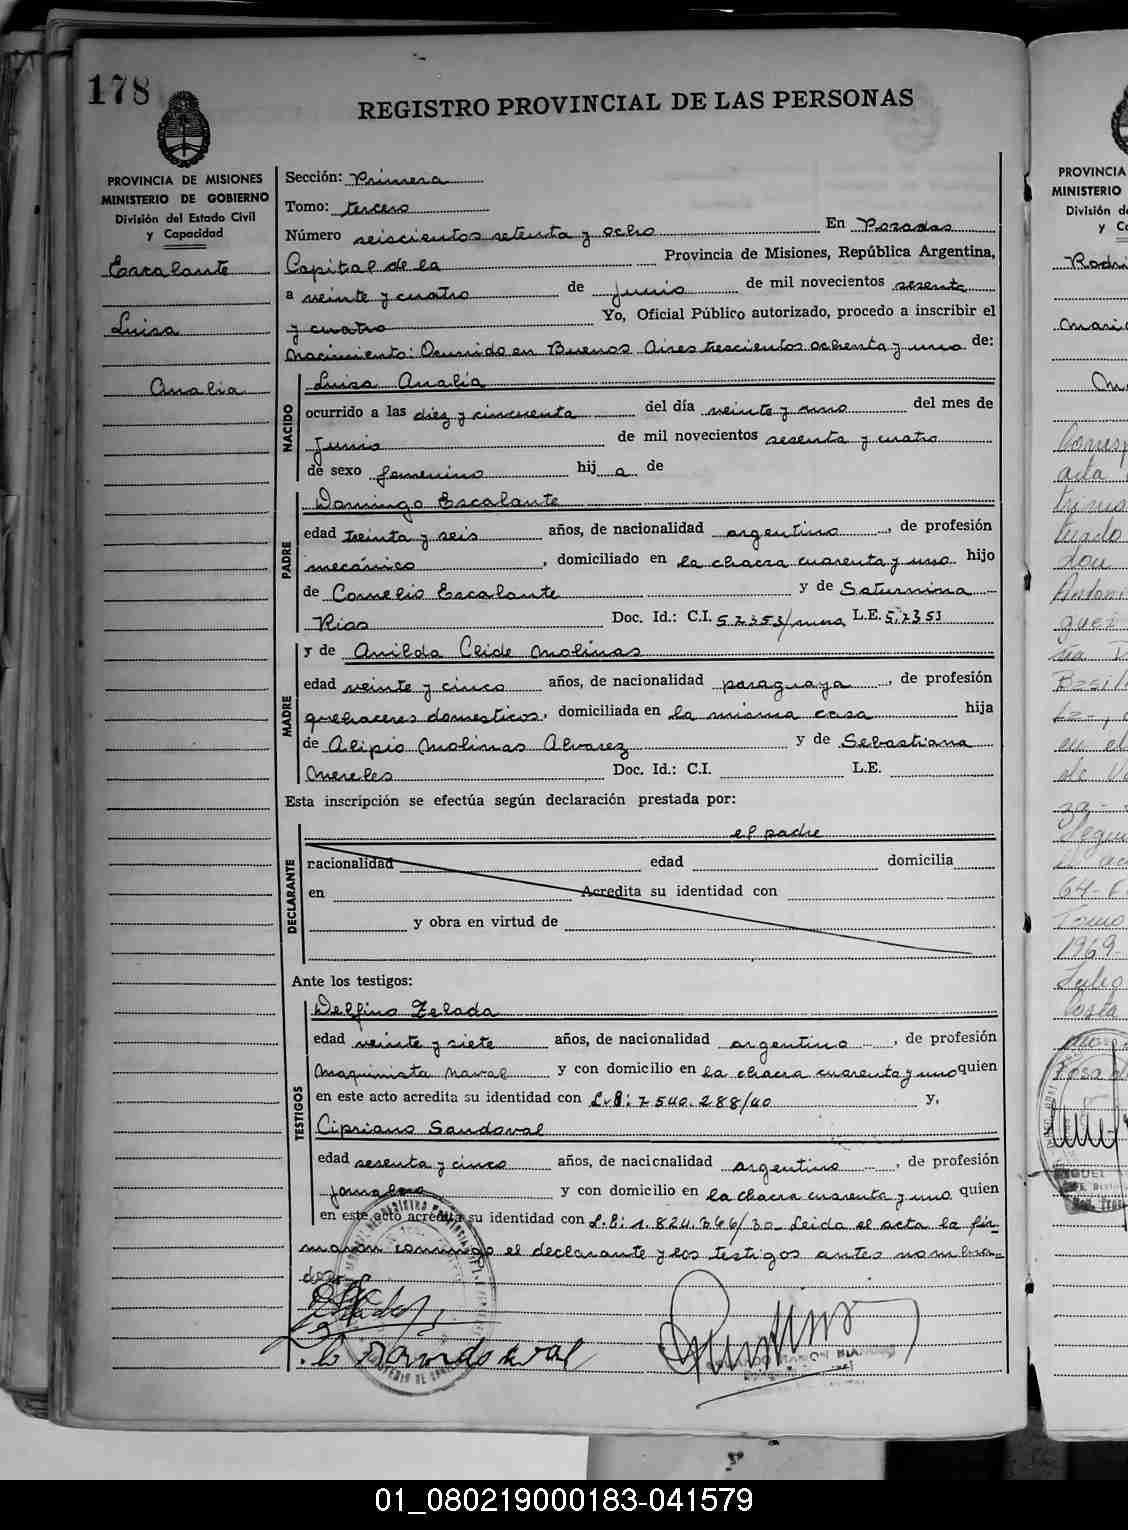 178
REGISTRO PROVINCIAL DE LAS PERSONAS
PROVINCIA DE MISIONES
MINISTERIO DE GOBIERNO
División del Estado Civil
y Capacidad
Escalante
Luisa
Analia
Sección: Primera
Tomo: tercero
Número seiscientos setenta y ocho En Posadas
Capital de la Provincia de Misiones, República Argentina,
a veinte y cuatro de junio de mil novecientos sesenta
y cuatro Yo, Oficial Público autorizado, procedo a inscribir el
nacimiento: Ocurrido en Buenos Aires trescientos ochenta y uno de:
NACIDO
Luisa Analía
ocurrido a las diez y cincuenta del día veinte y uno del mes de
Junio de mil novecientos sesenta y cuatro
de sexo femenino hij a de
PADRE
Domingo Escalante
edad treinta y seis años, de nacionalidad argentino, de profesión
mecánico, domiciliado en la chacra cuarenta y uno hijo
de Cornelio Escalante y de Saturnina
Rios Doc. Id.: C.I. 57353/mnes L.E. 57353
y de Anilda Clide Molinas
MADRE
edad veinte y cinco años, de nacionalidad paraguaya, de profesión
quehaceres domesticos, domiciliada en la misma casa hija
de Alipio Molinas Alvarez y de Sebastiana
Mereles Doc. Id.: C.I. L.E.
Esta inscripción se efectúa según declaración prestada por:
DECLARANTE
el padre
nacionalidad edad domicilia
en Acredita su identidad con
y obra en virtud de
Ante los testigos:
TESTIGOS
Delfino Zelada
edad veinte y siete años, de nacionalidad argentino, de profesión
Maquinista naval y con domicilio en la chacra cuarenta y uno quien
en este acto acredita su identidad con L.E: 7540.288/40 y,
Cipriano Sandoval
edad sesenta y cinco años, de nacionalidad argentino, de profesión
jornalero y con domicilio en la chacra cuarenta y uno quien
en este acto acredita su identidad con L.E: 1.824.746/30- Leida el acta la fir-
maron conmigo el declarante y los testigos antes nombra-
dos-
PROVINCIA
MINISTERIO
División d
01_080219000183-041579